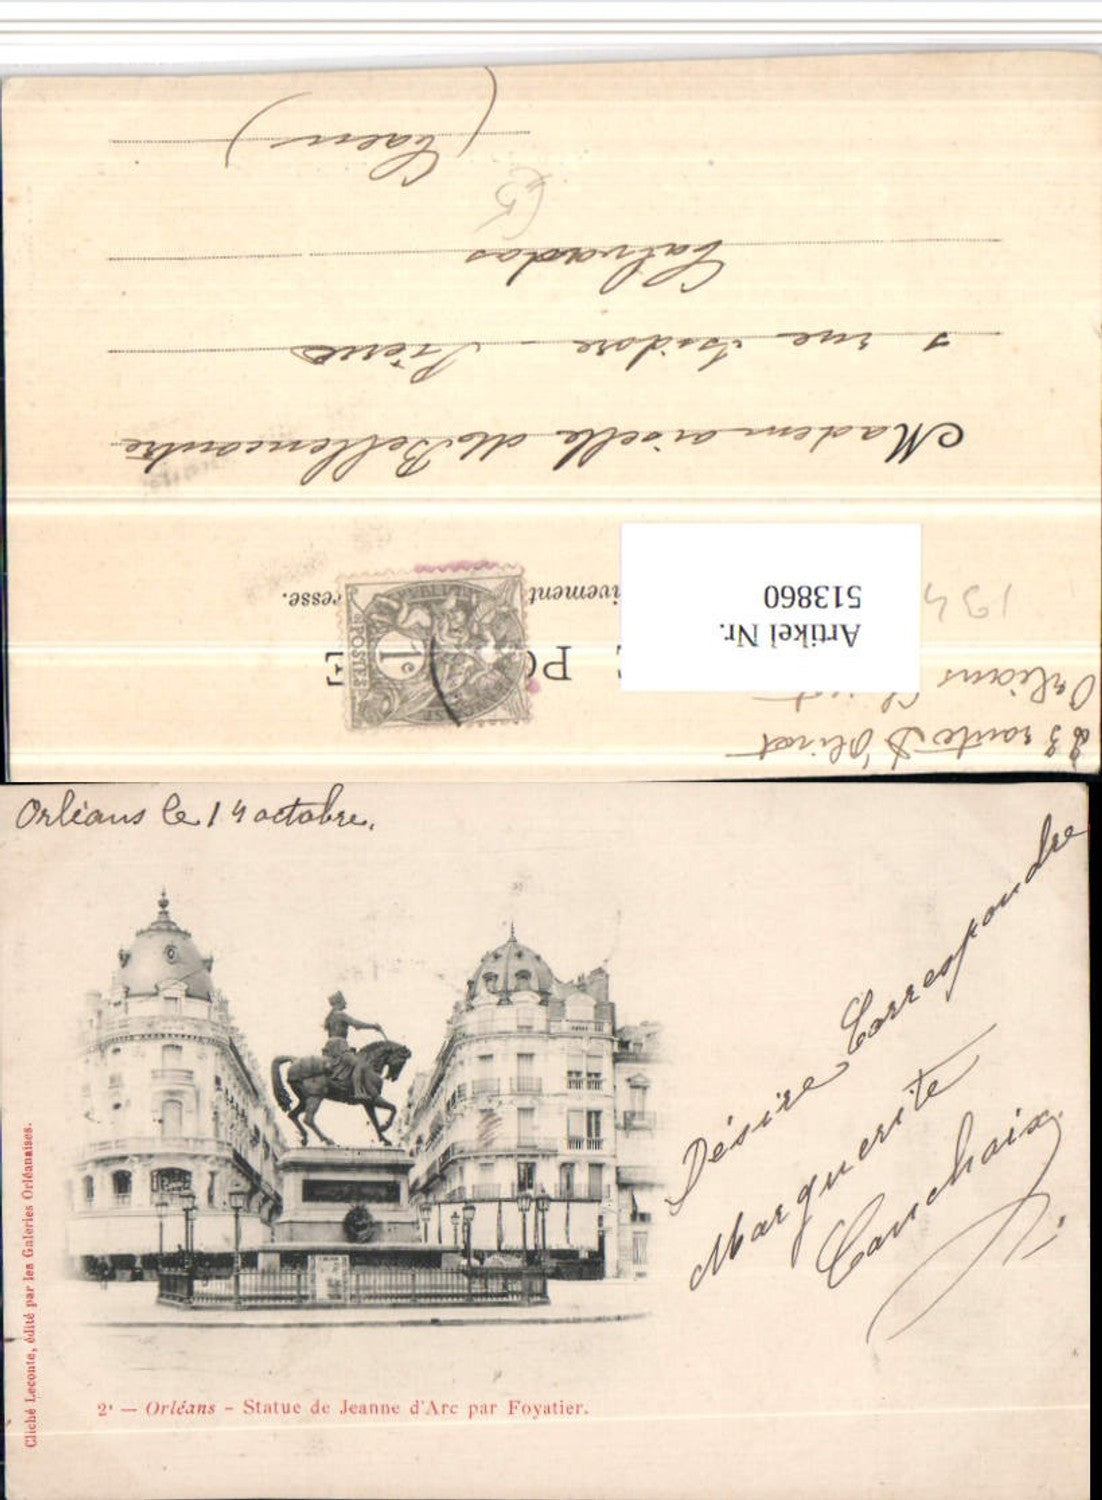 (Caen)
Calvados
1 rue Isidore - Pierre
Mademoiselle de Bellencontre
Artikel Nr.
513860
ivement
resse.
PO
E
1c
POSTES
134
23 route d'Olivet
Orléans
Orléans le 14 octobre.
Désire Correspondre
Marguerite
Cauchoix
Cliché Leconte, édité par les Galeries Orléanaises.
2' — Orléans - Statue de Jeanne d'Arc par Foyatier.